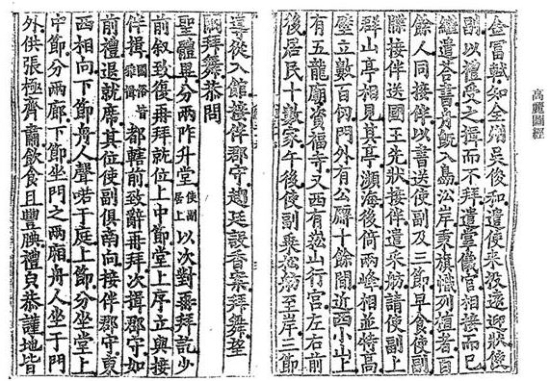 高麗圖經
金富軾知全州吳俊和遣使來投遠迎狀使
副以禮受之揖而不拜遣掌儀官相接而已
繼遣答書舟既入島沿岸秉旗幟列植者百
餘人同接伴以書送使副及三節早食使副
牒接伴送國王先狀接伴遣采舫請使副上
群山亭相見其亭瀕海後倚兩峰相並特高
壁立數百仞門外有公廨十餘間近西小山上
有五龍廟資福寺又西有崧山行宮左右前
後居民十數家午後使副乘松舫至岸三節
導從入館接伴郡守趨廷設香案拜舞望
闕拜舞恭問
聖體畢分兩阼升堂使副居上以次對再拜訖少
前叙致復再拜就位上中節堂上序立與接
伴揖國俗皆雅揖都轄前致辭再拜次揖郡守如
前禮退就席其位使副俱南向接伴郡守東
西相向下節舟人聲喏于庭上節分坐堂上
中節分兩廊下節坐門之兩廂舟人坐于門
外供張極齊肅飲食且豐腆禮皃恭謹地皆